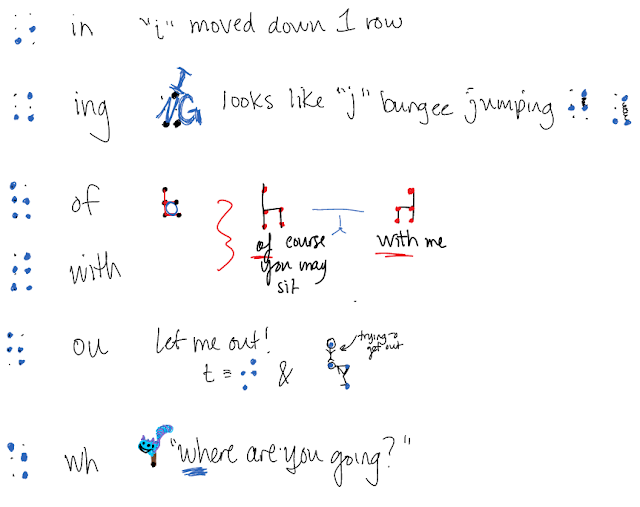 in "i" moved down 1 row
ing ING looks like "j" bungee jumping
of
of course with me
you may
sit
with
ou let me out! trying to
get out
t = &
wh "where are you going?"